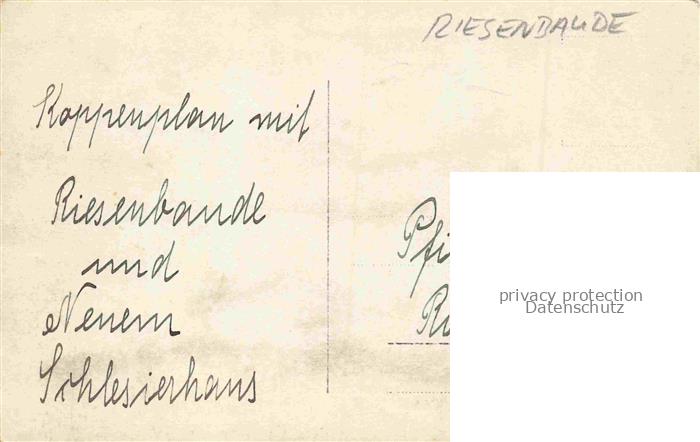 RIESENBAUDE
Koppenplan mit
Riesenbaude
und
Neuem
Schlesierhaus
privacy protection
Datenschutz